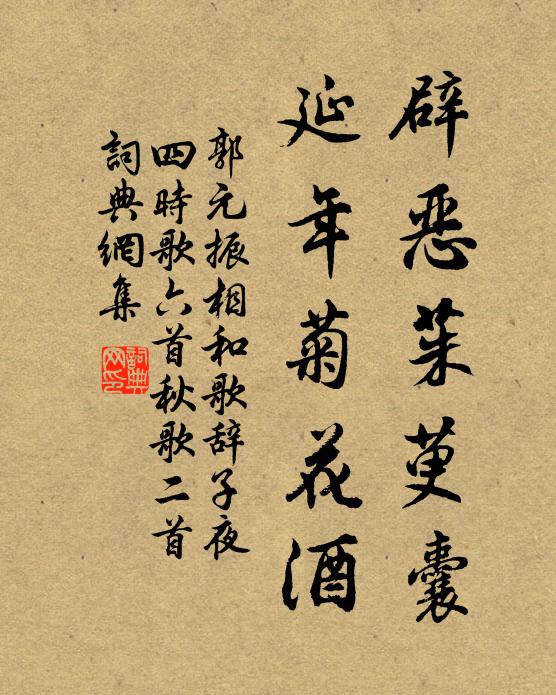 辟惡茱萸囊
延年菊花酒
郭元振相和歌辞子夜
四時歌六首秋歌二首
詞典網集
詞典
网印